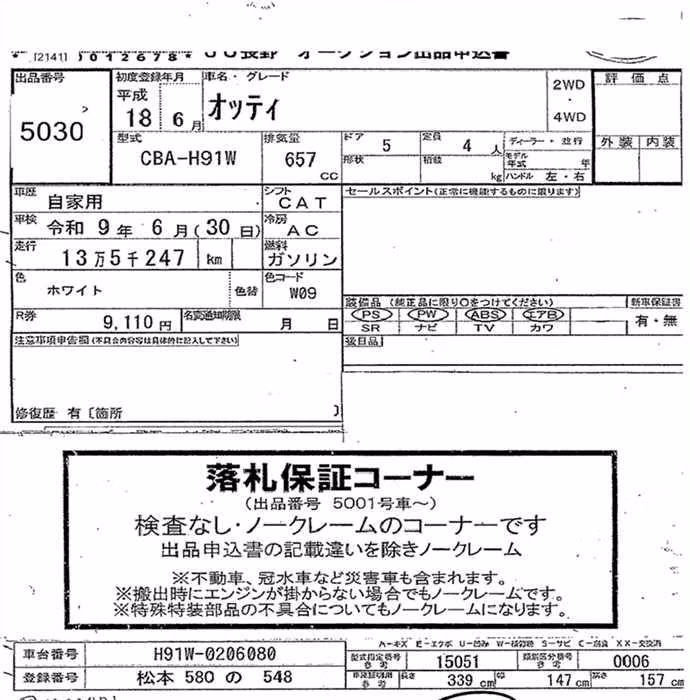 [2141] 0012678* JU長野 オークション出品申込書
出品番号 初度登録年月 車名・グレード 評価点
平成 18 6月 オッティ 2WD・4WD
5030
型式 排気量 ドア 5 定員 4人 ディーラー・並行 外装 内装
CBA-H91W 657 CC 形状 積載 kg モデル年式 年
ハンドル 左・右
車歴 自家用 シフト CAT セールスポイント(正常に機能するものに限ります)
車検 令和 9年 6月(30日) 冷房 AC
走行 13万5千247 km 燃料 ガソリン
色 ホワイト 色替 色コード W09
装備品(純正品に限り○をつけてください) 新車保証書
R券 9,110円 名変通知期限 月 日 PS PW ABS エアB 有・無
SR ナビ TV カワ
注意事項申告欄(不具合内容等は具体的に記入して下さい) 後日品
修復歴 有〔箇所 〕
落札保証コーナー
(出品番号 5001号車~)
検査なし・ノークレームのコーナーです
出品申込書の記載違いを除きノークレーム
※不動車、冠水車など災害車も含まれます。
※搬出時にエンジンが掛からない場合でもノークレームです。
※特殊特装部品の不具合についてもノークレームになります。
A-キズ E-エクボ U-凹み W-補修跡 S-サビ C-腐食 XX-交換済
車台番号 H91W-0206080 型式指定番号 参考 15051 類別区分番号 参考 0006
登録番号 松本 580 の 548 長さ 339cm 幅 147cm 高さ 157cm